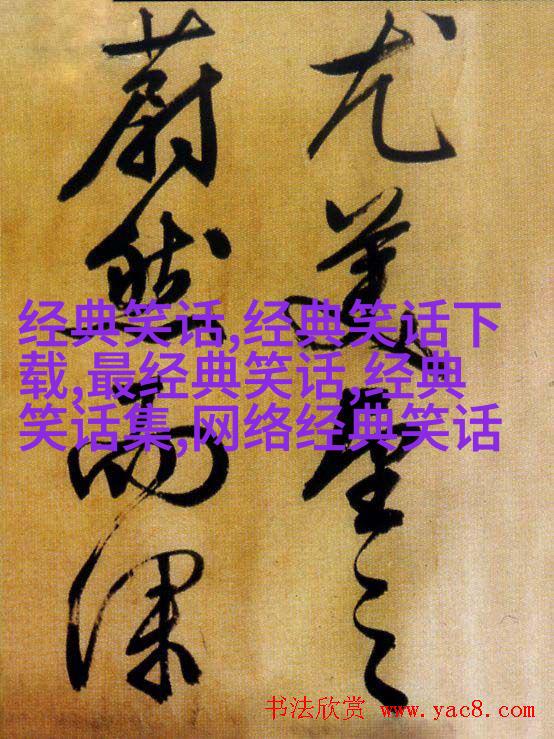 尤美望之
蔚然而深
经典笑话,经典笑话下
载,最经典笑话,经典
笑话集,网络经典笑话
书法欣赏 www.yac8.com